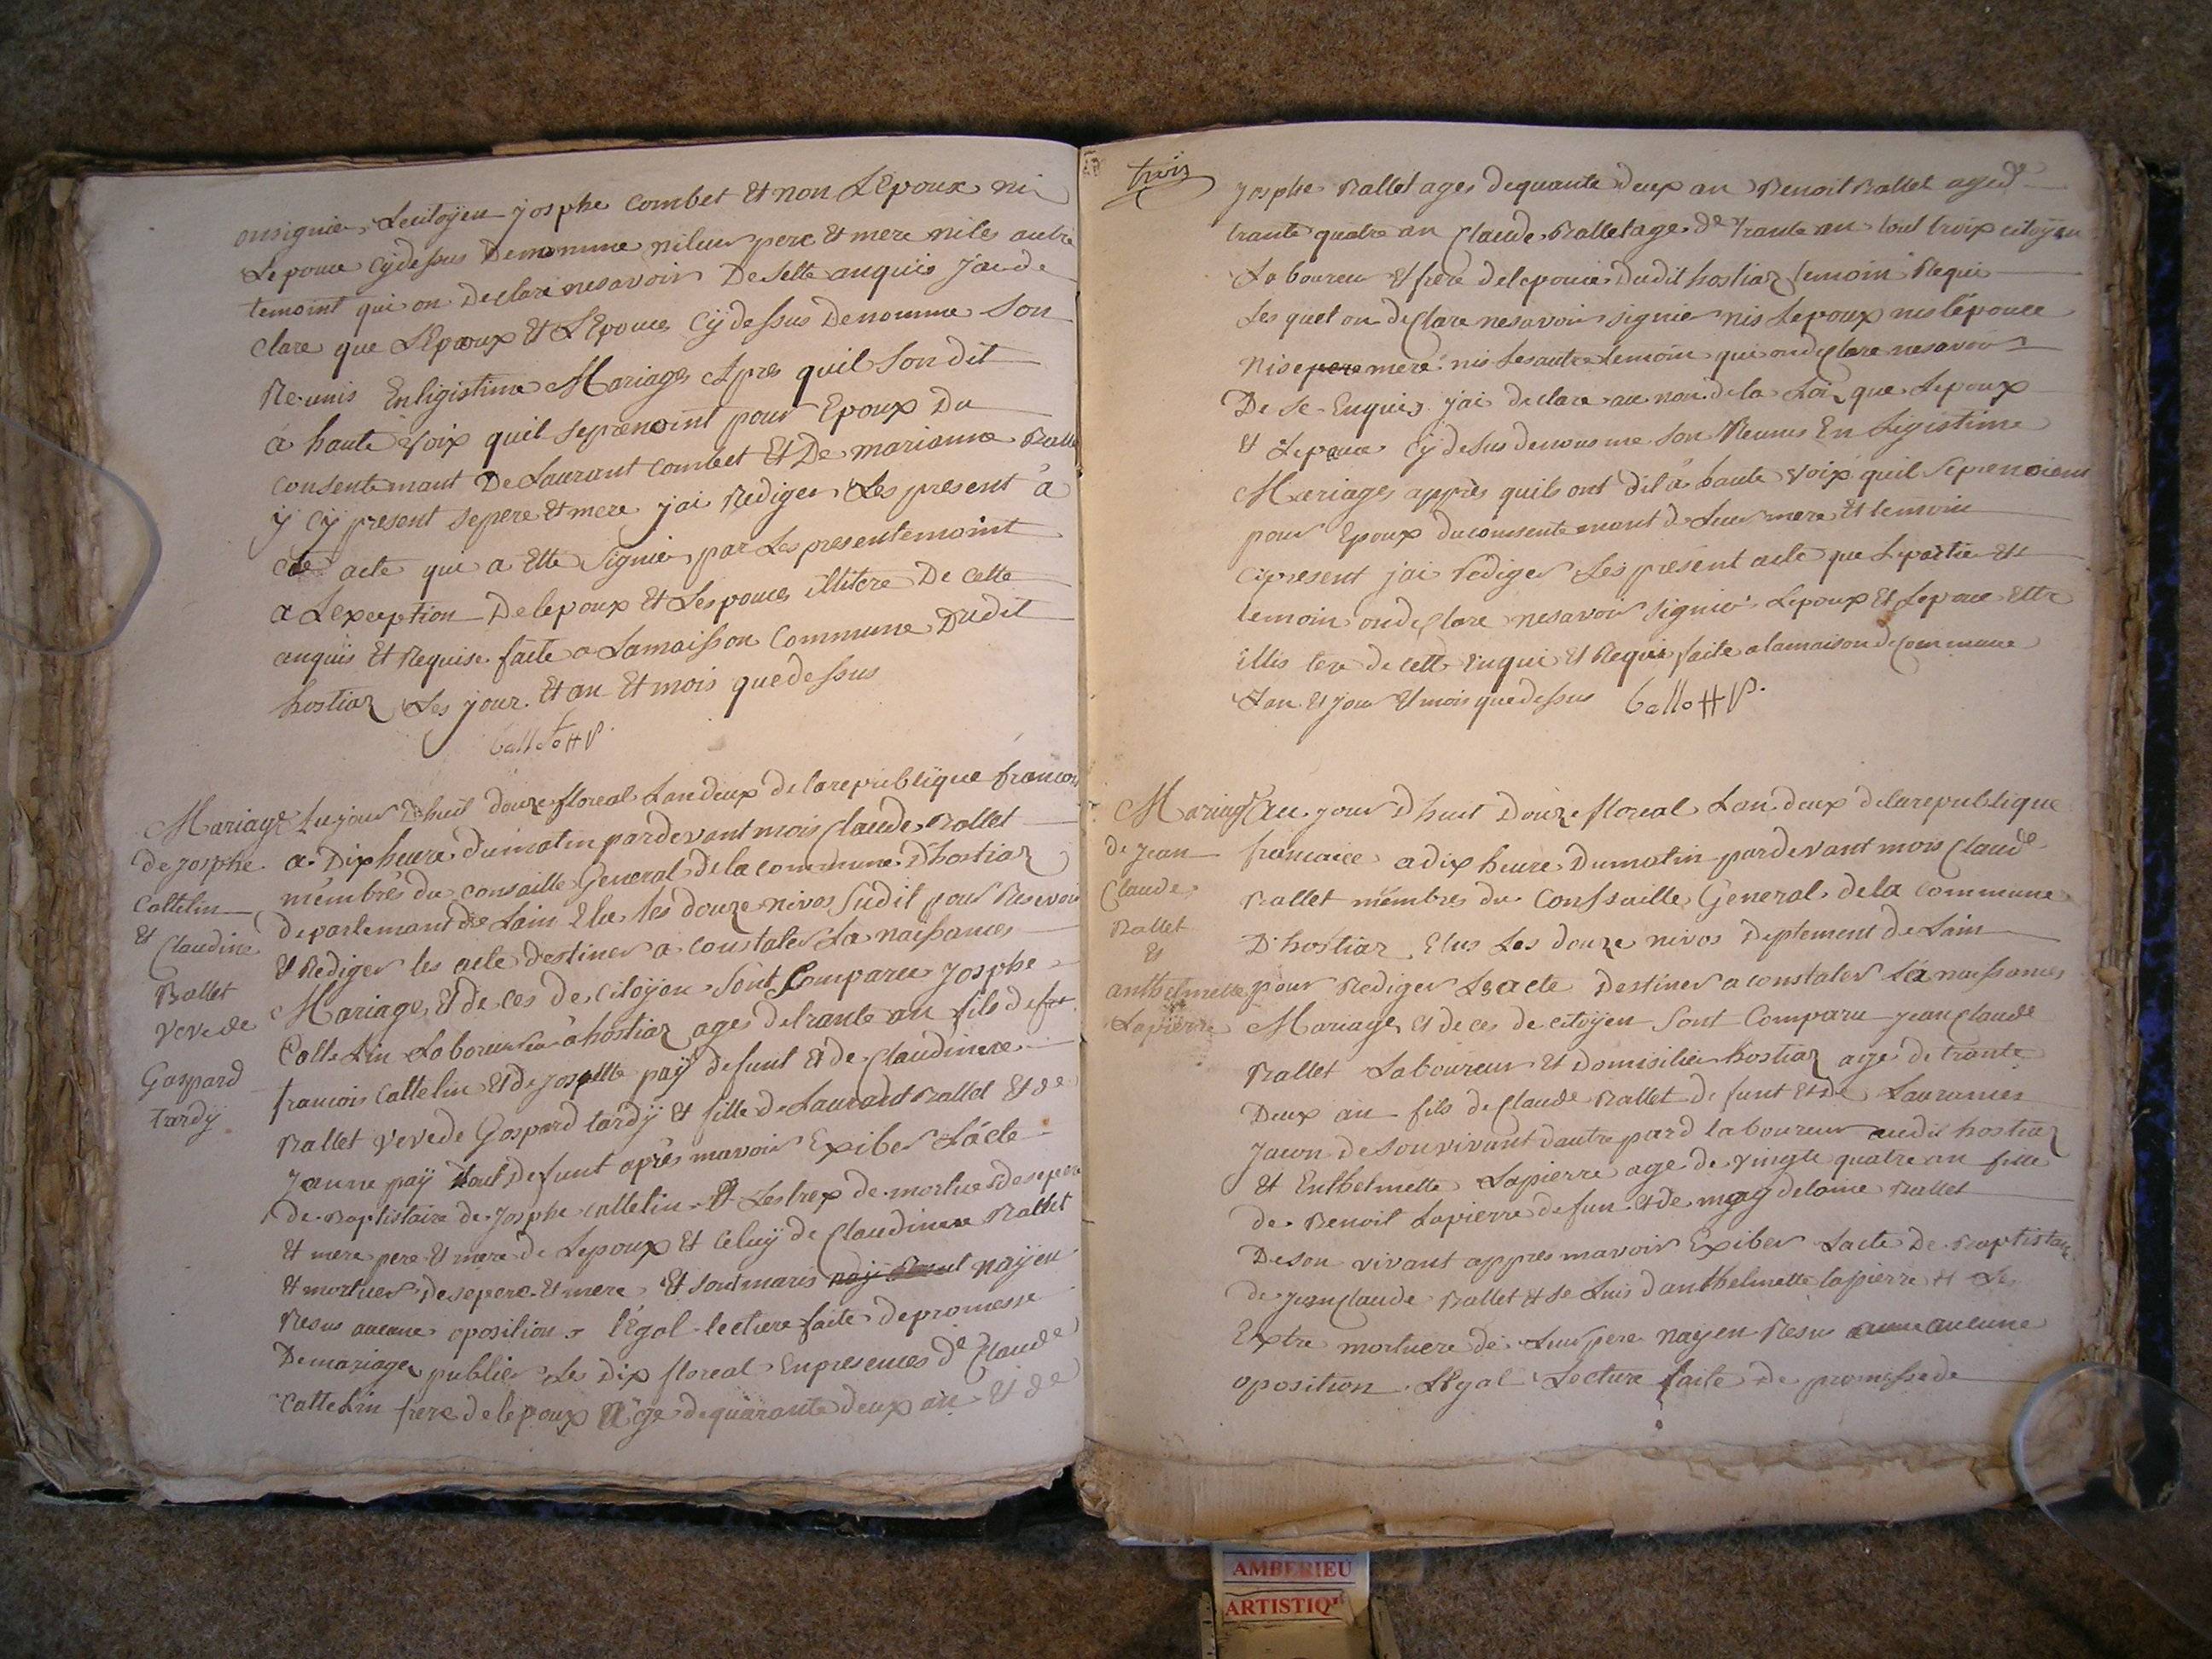 onsignier Lecitoÿen josphe Combet Et non LEpoux ni
Lepouce cÿdessus Denomme nileur pere Et mere niles autre
temoint qui on Declare nesavoir De sette anquis J'ai de
clare que LEpoux Et LEpouce Cÿdessus Denomme Son
Reunis Enligistime Mariages Apres quil Son dit
a haute Voix quil seprenoint pour Epoux Du
Consentemant De Laurant Combet Et De marianne Balle
ÿ Cÿ present sepere Et mere j'ai Rediger Les present à
acte qui a Ette Signier par Les presentemoint
a Lexception Delepoux Et Lespouces illitere De Cette
anquis Et Requise faite a Lamaisson Commune Dudit
hostiaz Les jour Et an Et mois quedessus
ballet H P.
Mariage
de Josphe
Cattelin
Et
Claudine
Ballet
Vevede
Gaspard
tardÿ
aujour dhuit douze floreal Landeux de larepublique francois
a Dix heure dumatin pardevant mois Claude Ballet
membres du consaille General de la commune d'hostiaz
departemant de Lain Elu les douze nivos Sudit pour Resevoir
Et Rediger les acte destiner a constater La naissances
Mariage Et de ces de Citoÿen Sont Comparee Josphe
Cattelin Laboureur à hostiaz ages detrante an fils de
francois Cattelin Et de Josephte paÿ defunt Et de Claudinere
Ballet vevede Gaspard tardÿ Et fille de Laurant Ballet Et de
Jeanne paÿ tout Defunt après mavoir Exiber Lácte
de Baptistaire de Josphe cattelin Et Lestrex de mortue desepere
Et mere pere Et mere de Lepoux Et Celuÿ de Claudinere Ballet
Et mortuer desepere Et mere Et sont maris naÿen
Resus aucune oposition. légal lecture faite depromesse
Demariages publier Les Dix floreal Enpresences de Claude
Cattelin frere delepoux Age dequarante deux an Et de
trois
Josphe Ballet ages dequante deux an Benoit Ballet aged
trante quatre an Claude Ballet age de trante an tout troix citoÿen
Laboureur Et frere delepouce Dudit hostiaz temoin Requi
Les quel on declare nesavoir signier nis Lepoux nis lépouce
nise pere mere nis Lesautre temoin quiondeclare nesavoir
De Se Enquis j'ai declare au non de la Loi que Lepoux
Et Lepouce Cÿdesus denousme Son Reunis En Ligistime
Mariages apprès quils ont dit à haute Voix quil Seprenoient
pour Epoux du consentemant de Leur mere Et temoin
cipresent jai rediger Les present acte que Lepartie Et
temoin ondeclare nesavoir Signier Lepoux Et Lepouce Ette
illis tere de cette Enqui Et Requis faite alamaison de commune
Lan Et Jour Et mois quedessus ballet H P.
Mariage
de Jean
Claude
Ballet
Et
anthelmette
Lapierre
Au jour D'huit Douze floreal Lan deux delarepublique
francaice a dix heure Dumatin pardevant mois Claude
Ballet membres du Conssaille General de la Commune
D'hostiaz Elus Les douze nivos deptement de Lain
pour Rediger Lesacte Destiner a constater La naissances
Mariage Et de ces de citoÿen Sont Comparu Jean Claude
Ballet Laboureur Et Domisilier hostiaz age de trante
Deux an fils de Claude Ballet defunt Et de Lauranies
Jacon desouvivant dautre pard laboureur audit hostiaz
Et Enthelmette Lapierre age de vingte quatre an fille
de Benoit Lapierre defun Et de magdelaine Ballet
Deson vivant appres mavoir Exiber Lacte De Baptistaire
de Jean Claude Ballet Et se Luis danthelmette lapierre Et Le
Extre mortuere de Leur pere naÿen Resu aucune
oposition LEgal Lecture faite de promissede
AMBERIEU
ARTISTIQ